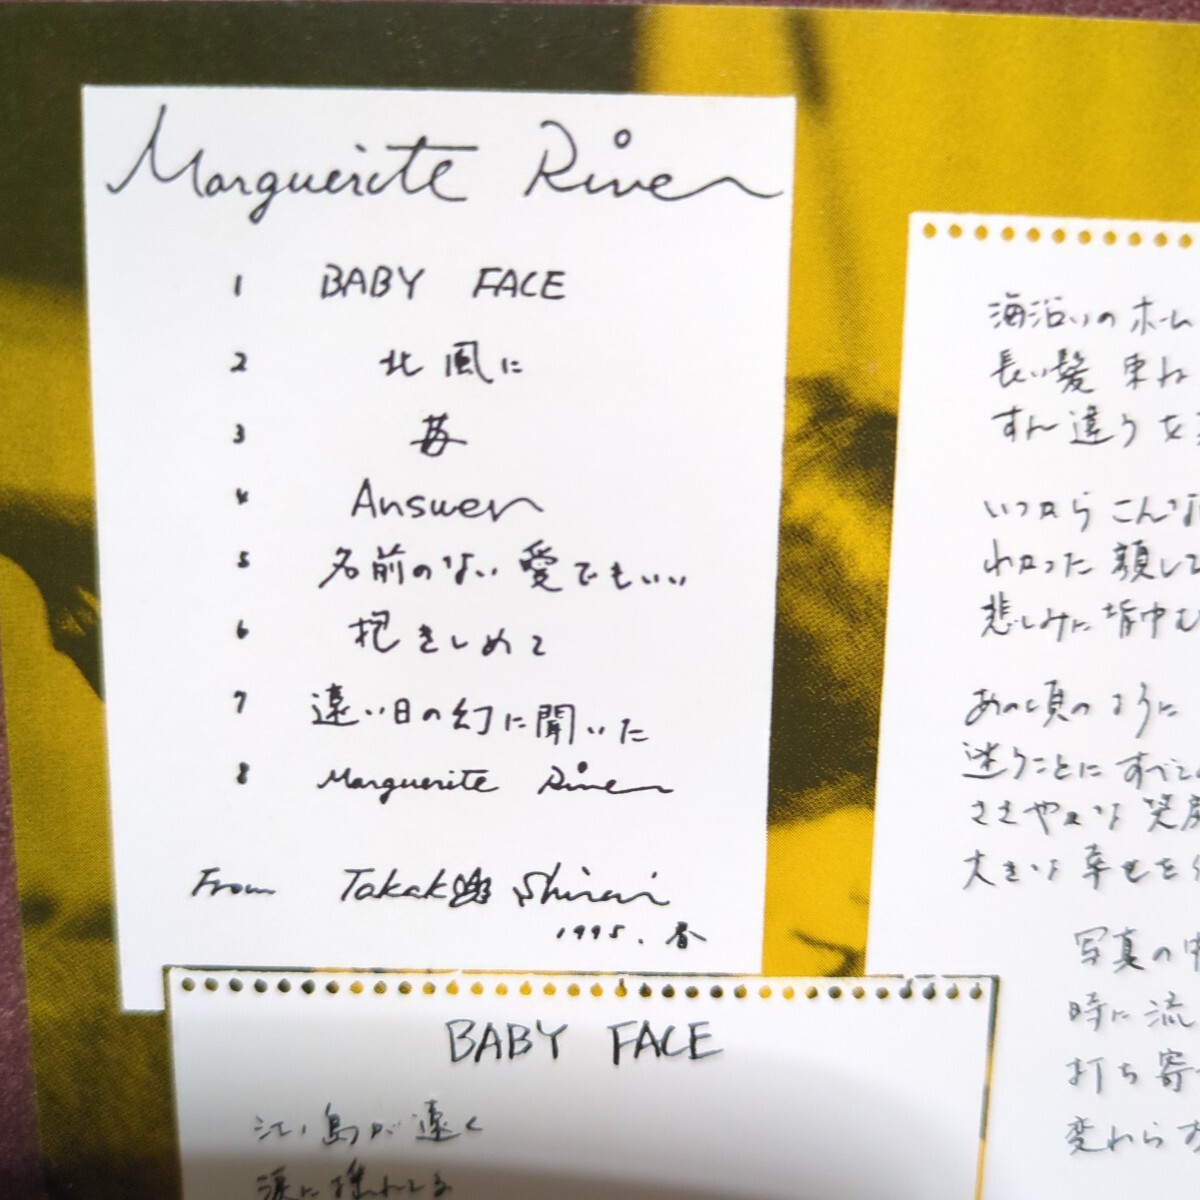 Marguerite River
1 BABY FACE
2 北風に
3 苺
4 Answer
5 名前のない愛でもいい
6 抱きしめて
7 遠い日の幻に聞いた
8 Marguerite River
From Takako Shirai
1995. 春
BABY FACE
江ノ島が遠く
涙に揺れてる
海沿いのホーム
長い髪 束ね
すれ違う女
いつから こんな
わかった 顔して
悲しみに 背中む
あの頃のように
迷うことに すべて
ささやかな 笑顔
大きな 幸せを
写真の中
時に 流
打ち寄せ
変わらな